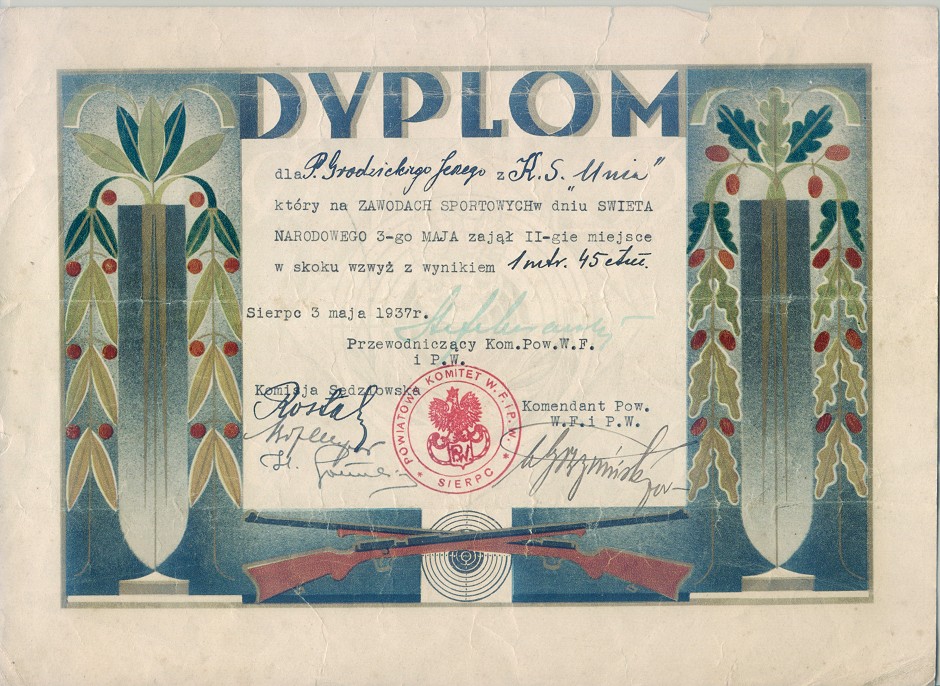 DYPLOM
dla P. Grodzickiego Jerzego z K.S. „Unia”
który na ZAWODACH SPORTOWYCHw dniu SWIETA
NARODOWEGO 3-go MAJA zajął II-gie miejsce
w skoku wzwyż z wynikiem 1 mtr. 45 ctm.
Sierpc 3 maja 1937r.
Przewodniczący Kom.Pow.W.F.
i P.W.
Komisja Sędziowska
Komendant Pow.
W.F. i P.W.
POWIATOWY KOMITET W.F. i P.W.
* SIERPC *
PW